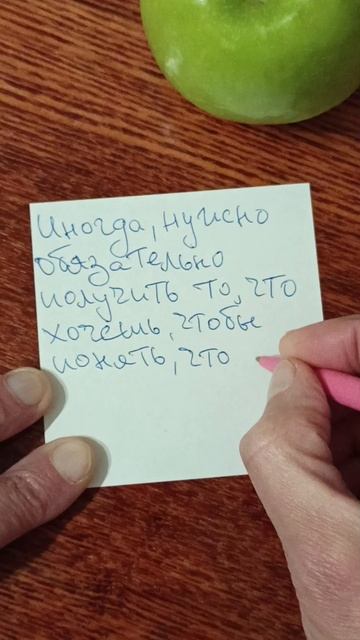 Иногда, нужно
обязательно
получить то, что
хочешь, чтобы
понять, что